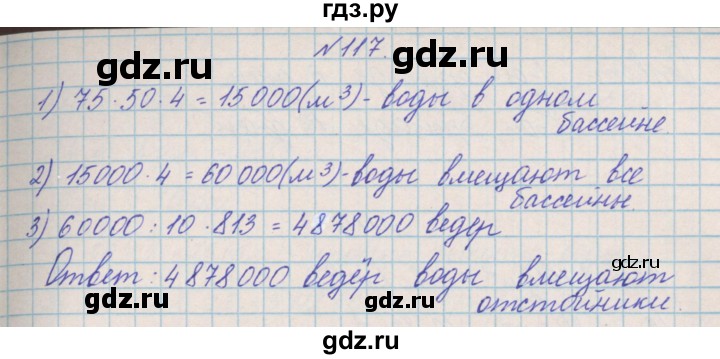 гдз.ру
№117.
1) 75·50·4 = 15000(м³)- воды в одном
бассейне.
2) 15000·4 = 60000(м³)-воды вмещают все
бассейны
3) 60000:10·813 = 4878000 ведер
Ответ: 4878000 ведёр воды вмещают
отстойники.
gdz.ru
gdz.ru
gdz.ru
gdz.ru
gdz.ru
gdz.ru
gdz.ru
gdz.ru